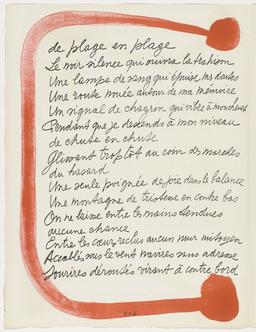 de plage en plage
Le noir silence qui ouvrira la trahison
Une lampe de sang qui épuise mes doutes
Une route nouée autour de ma mémoire
Un signal de chagrin qui vibre à mon chevet
Pendant que je descends à mon niveau
de chute en chute
Glissant trop tôt au coin des marches
du hasard
Une seule poignée de joie dans la balance
Une montagne de tristesse en contre bas
On ne laisse entre les mains tendues
aucune chance
Entre les cœurs reclus aucun mur mitoyen
Accablés sous le vent navires sans adresse
Sourires déroutés virant à contre bord